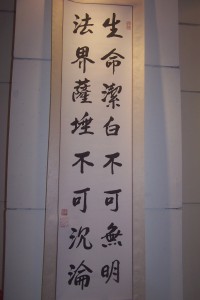 生命潔白不可無明
法界薩埵不可沉淪